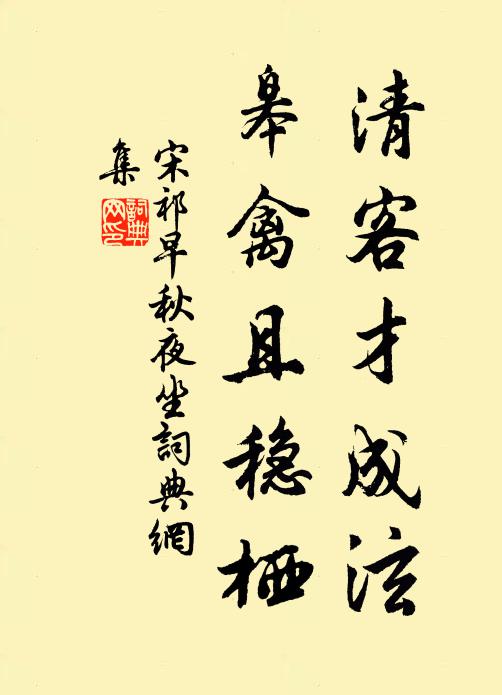 清客才成泫
皋禽且稳栖
宋祁早秋夜坐詞典網
集
詞典
网印